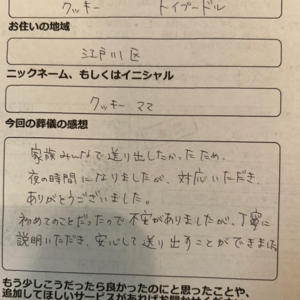 クッキー　トイプードル
お住いの地域
江戸川区
ニックネーム、もしくはイニシャル
クッキー ママ
今回の葬儀の感想
家族みんなで送り出したかったため、
夜の時間になりましたが、対応いただき、
ありがとうございました。
初めてのことだったので不安がありましたが、丁寧に
説明いただき、安心して送り出すことができました
もう少しこうだったら良かったのにと思ったことや、
追加してほしいサービスがあればお聞かせください